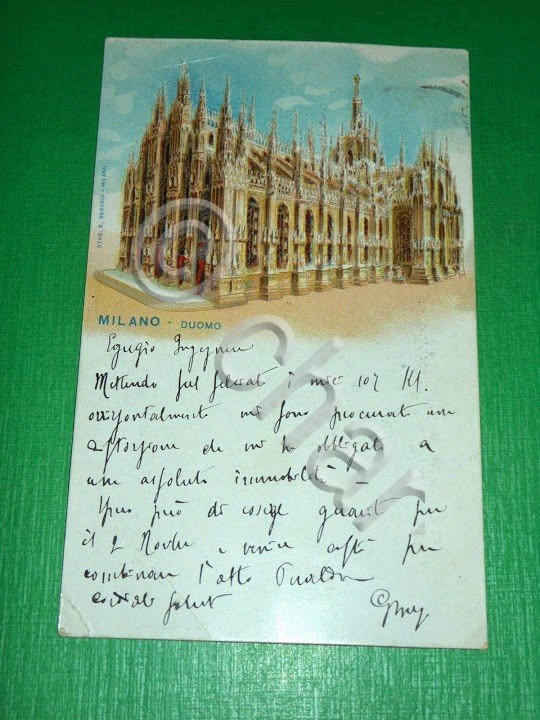 STAB. E. BERARDI - MILANO
MILANO - DUOMO
Egregio Ingegnere
Mettendo sul selciato i miei 107 Kl.
orizzontalmente mi sono procurato una
che mi ha obbligato a
una assoluta immobilità
può di essere guarito per
il 2 Novbre e venire costì per
combinare l'atto
cordiali saluti
© char